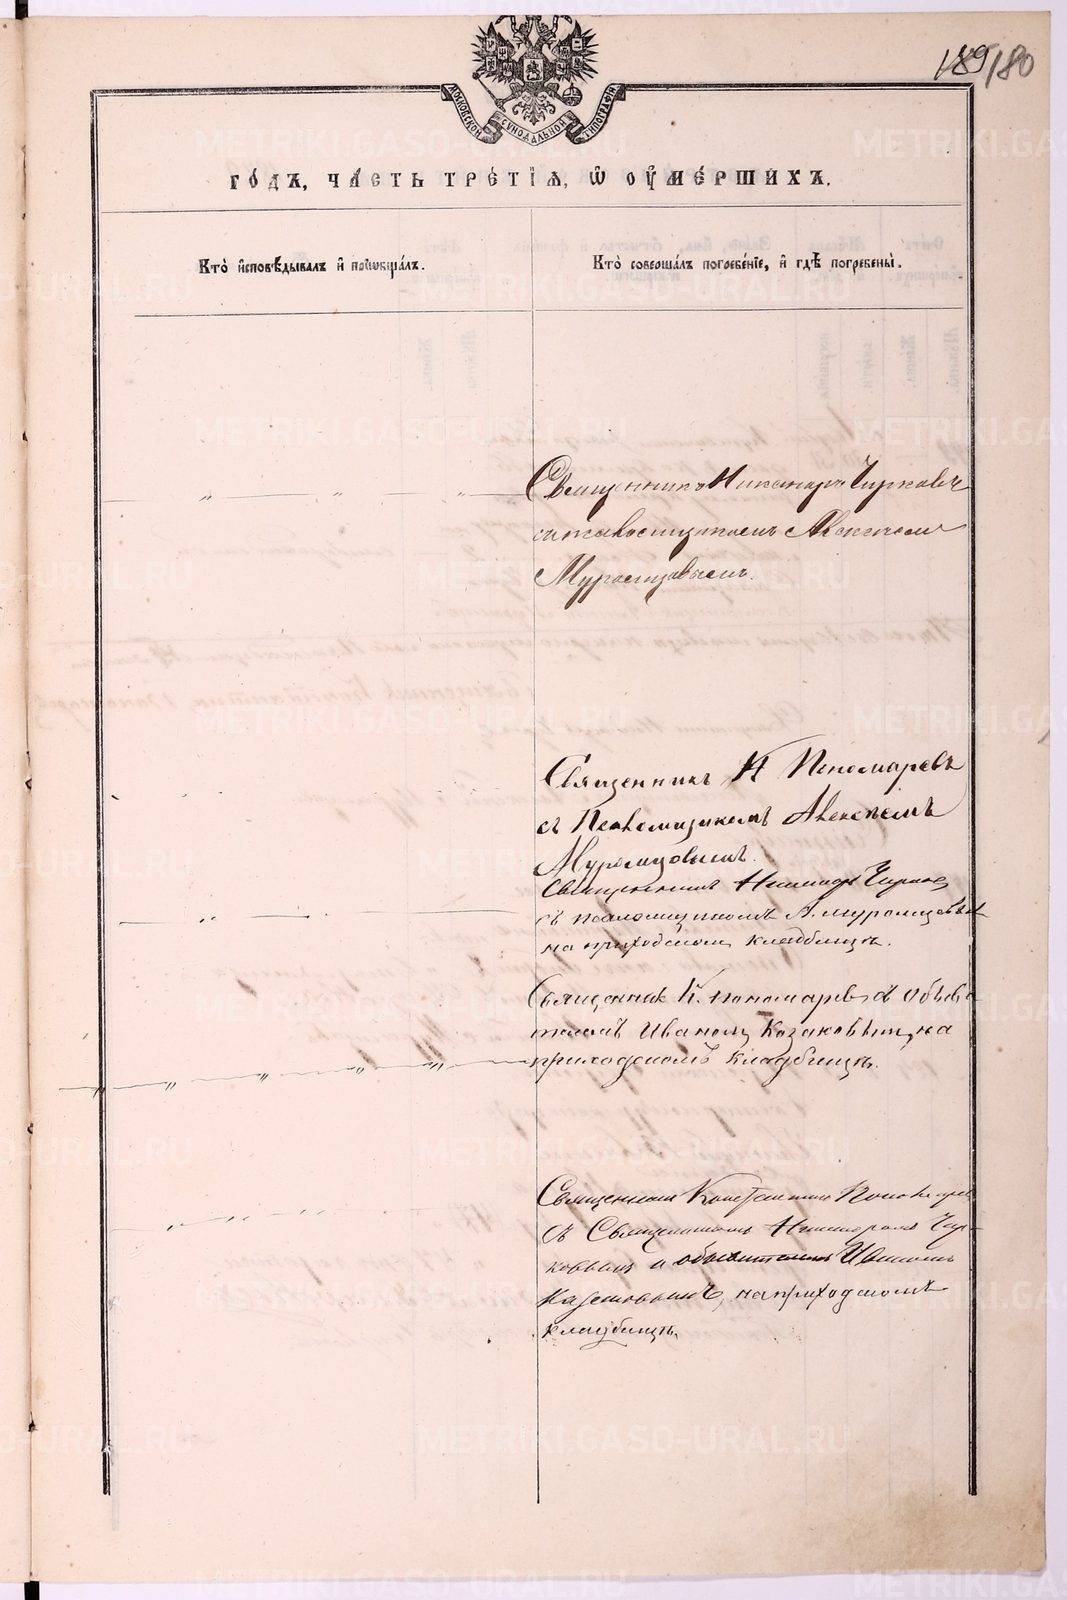 189 180
МОСКОВСКОЙ СѴНОДАЛЬНОЙ ТИПОГРАФІИ
ГОДЪ, ЧАСТЬ ТРЕТІЯ, Ѡ ОУМЕРШИХЪ.
Кто исповѣдывалъ и пріобщалъ.
Кто совершалъ погребеніе, и гдѣ погребены.
Священникъ Никаноръ Чирковъ
съ псаломщикомъ Алексѣемъ
Муромцовымъ.
Священникъ К Пономаревъ
съ Псаломщикомъ Алексѣемъ
Муромцовымъ.
Священникъ Никаноръ Чирков
съ псаломщикомъ А. Муромцовым
на приходскомъ кладбищѣ.
Священник К. Пономаревъ съ
томъ Иваномъ Козаковым, на
приходскомъ кладбищѣ.
Священник Константин Пономарев
съ Священником Никаноромъ Чир-
ковым и Иваномъ
Казаковымъ, на приходскомъ
кладбищѣ.
METRIKI.GASO-URAL.RU